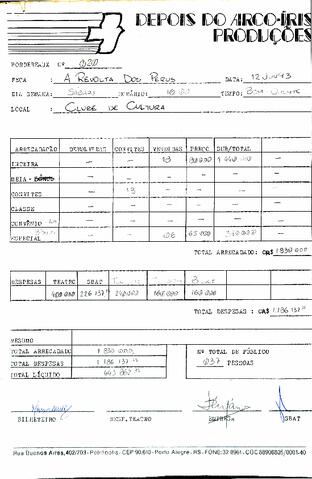 DEPOIS DO ARCO-ÍRIS
PRODUÇÕES
BORDEREAUX Nº 020
PEÇA : A REVOLTA DOS PERUS DATA: 12 JUN 93
DIA SEMANA: SÁBADO HORÁRIO: TEMPO: BOM
LOCAL : CLUBE DE CULTURA
ARRECADAÇÃO DEVOLVIDAS CONVITES VENDIDAS PREÇO SUB/TOTAL
INTEIRA — — 18 80000 1 440 000 —
MEIA — — — — — —
CONVITES — 13 — — — —
CLASSE — — — — — —
CONVÊNIO — — — — —
ESPECIAL — — 06 65 000 —
TOTAL ARRECADADO: CR$ 1 830 000
DESPESAS TEATRO SBAT
226 137 160.000 160 000
TOTAL DESPESAS : CR$ 1 186 137
RESUMO
TOTAL ARRECADADO 1 830 000
TOTAL DESPESAS 1 186 137
TOTAL LÍQUIDO
Nº TOTAL DE PÚBLICO
037 PESSOAS
BILHETEIRO RESP.TEATRO EMPRESA SBAT
Rua Buenos Aires, 402/703 - Petrópolis - CEP 90.610 - Porto Alegre - RS - FONE: 32 8961 -